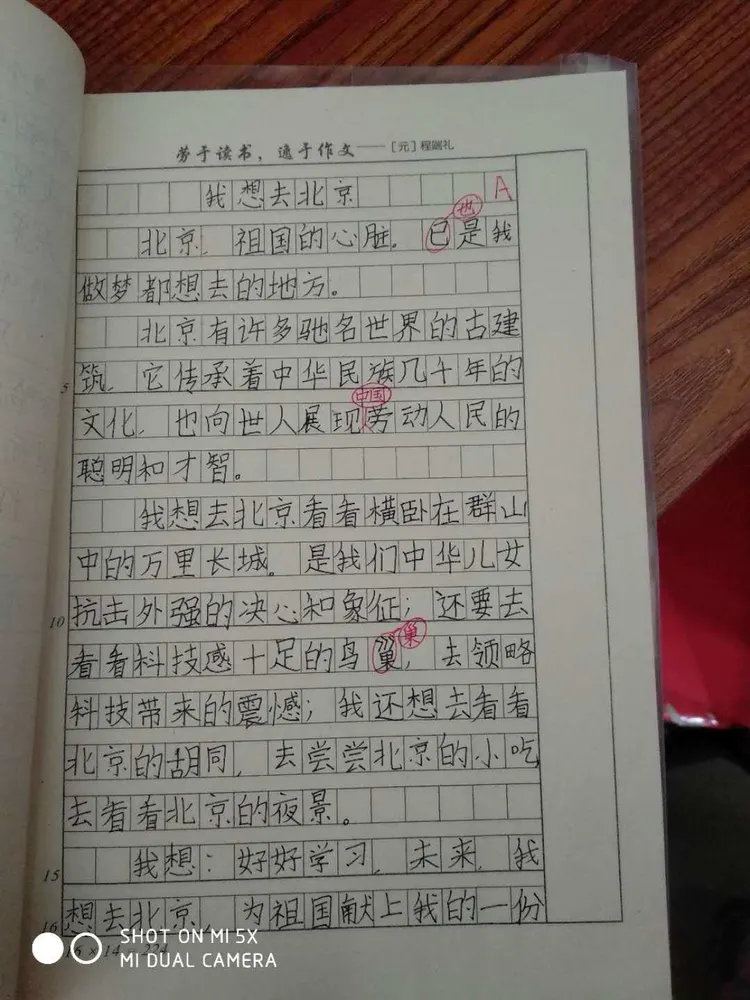 劳于读书，逸于作文——［元］程端礼
我想去北京 A
也
北京，祖国的心脏。已是我
做梦都想去的地方。
北京有许多驰名世界的古建
筑，它传承着中华民族几千年的
中国
文化，也向世人展现劳动人民的
聪明和才智。
我想去北京看看横卧在群山
中的万里长城。是我们中华儿女
10 抗击外强的决心和象征；还要去
巢
看看科技感十足的鸟巢；去领略
科技带来的震憾；我还想去看看
北京的胡同，去尝尝北京的小吃
去看看北京的夜景。
15 我想：好好学习，未来，我
16 想去北京，为祖国献上我的一份
16×14=224
SHOT ON MI 5X
MI DUAL CAMERA